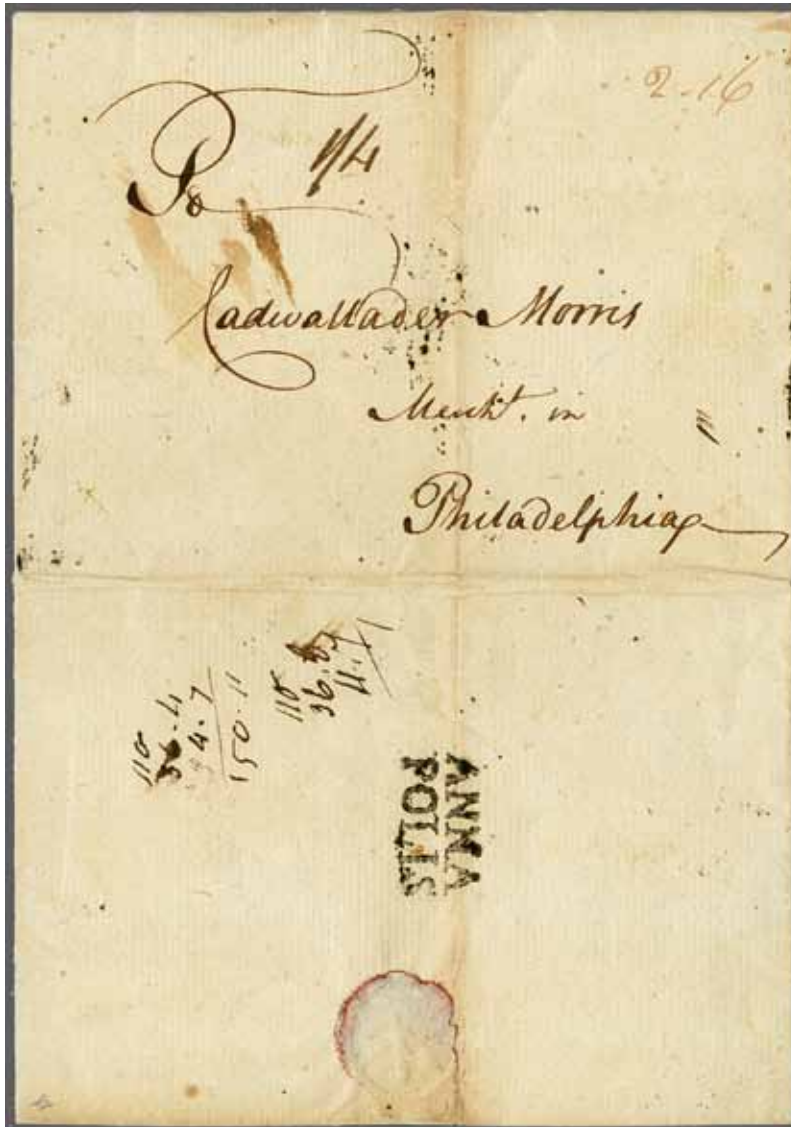 2-16
1/4
To
Cadwallader Morris
Mercht. in
Philadelphia
118
36.4
4.7
150.11
118
36.
11.
ANNA
POLIS